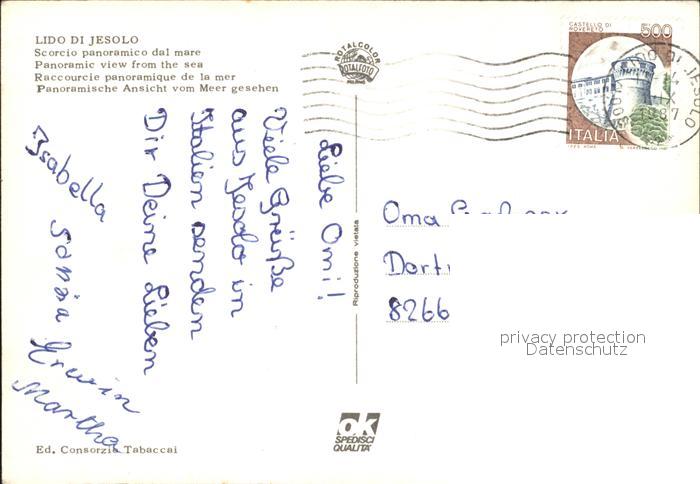 LIDO DI JESOLO
Scorcio panoramico dal mare
Panoramic view from the sea
Raccourcie panoramique de la mer
Panoramische Ansicht vom Meer gesehen
ROTALCOLOR
ROTALFOTO
MILANO
CASTELLO DI
ROVERETO
500
ITALIA
Liebe Omi!
Viele Grüße
aus Jesolo in
Italien senden
Dir Deine Lieben
Isabella
Sonja
Erwin
Martha
Riproduzione vietata
Oma
8266
privacy protection
Datenschutz
ok
SPEDISCI
QUALITA'
Ed. Consorzio Tabaccai